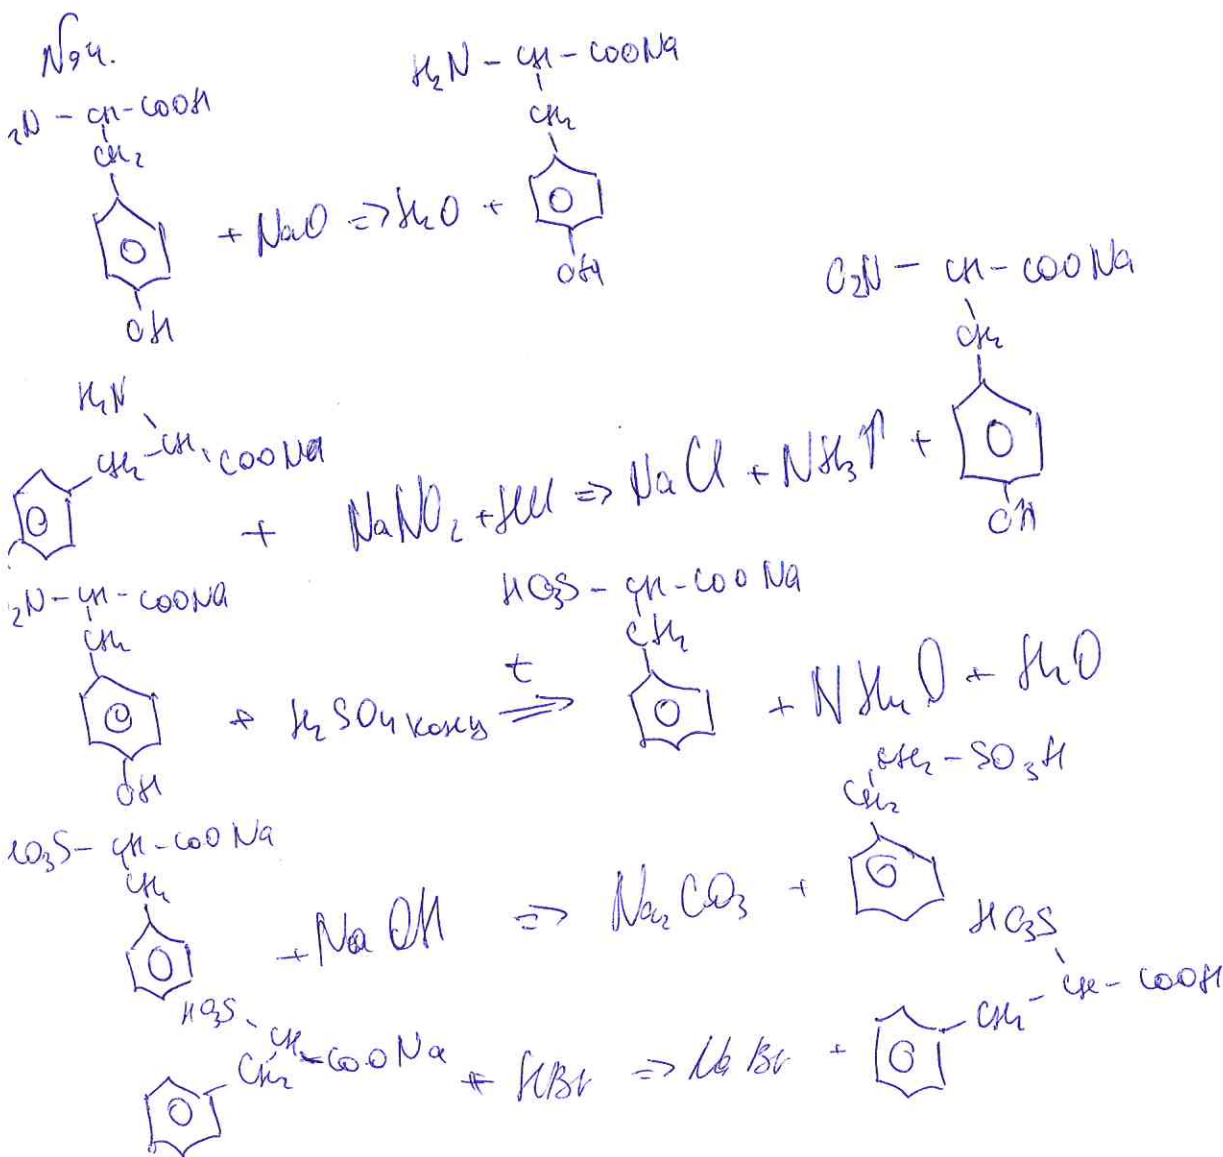 №94.
₂N – CH – COOH
CH₂
OH
+ NaO ⇒ H₂O +
H₂N – CH – COONa
CH₂
OH
H₂N
CH₂ – CH – COONa
+ NaNO₂ + HCl ⇒ NaCl + NH₃↑ +
O₂N – CH – COONa
CH₂
OH
₂N – CH – COONa
CH₂
OH
+ H₂SO₄ конц ⇒ t
HO₃S – CH – COONa
CH₂
+ NH₄O + H₂O
O₃S – CH – COONa
CH₂
+ NaOH ⇒ Na₂CO₃ +
CH₂ – SO₃H
CH₂
HO₃S
CH – COONa
CH₂
+ HBr ⇒ NaBr +
HO₃S
CH₂ – CH – COOH